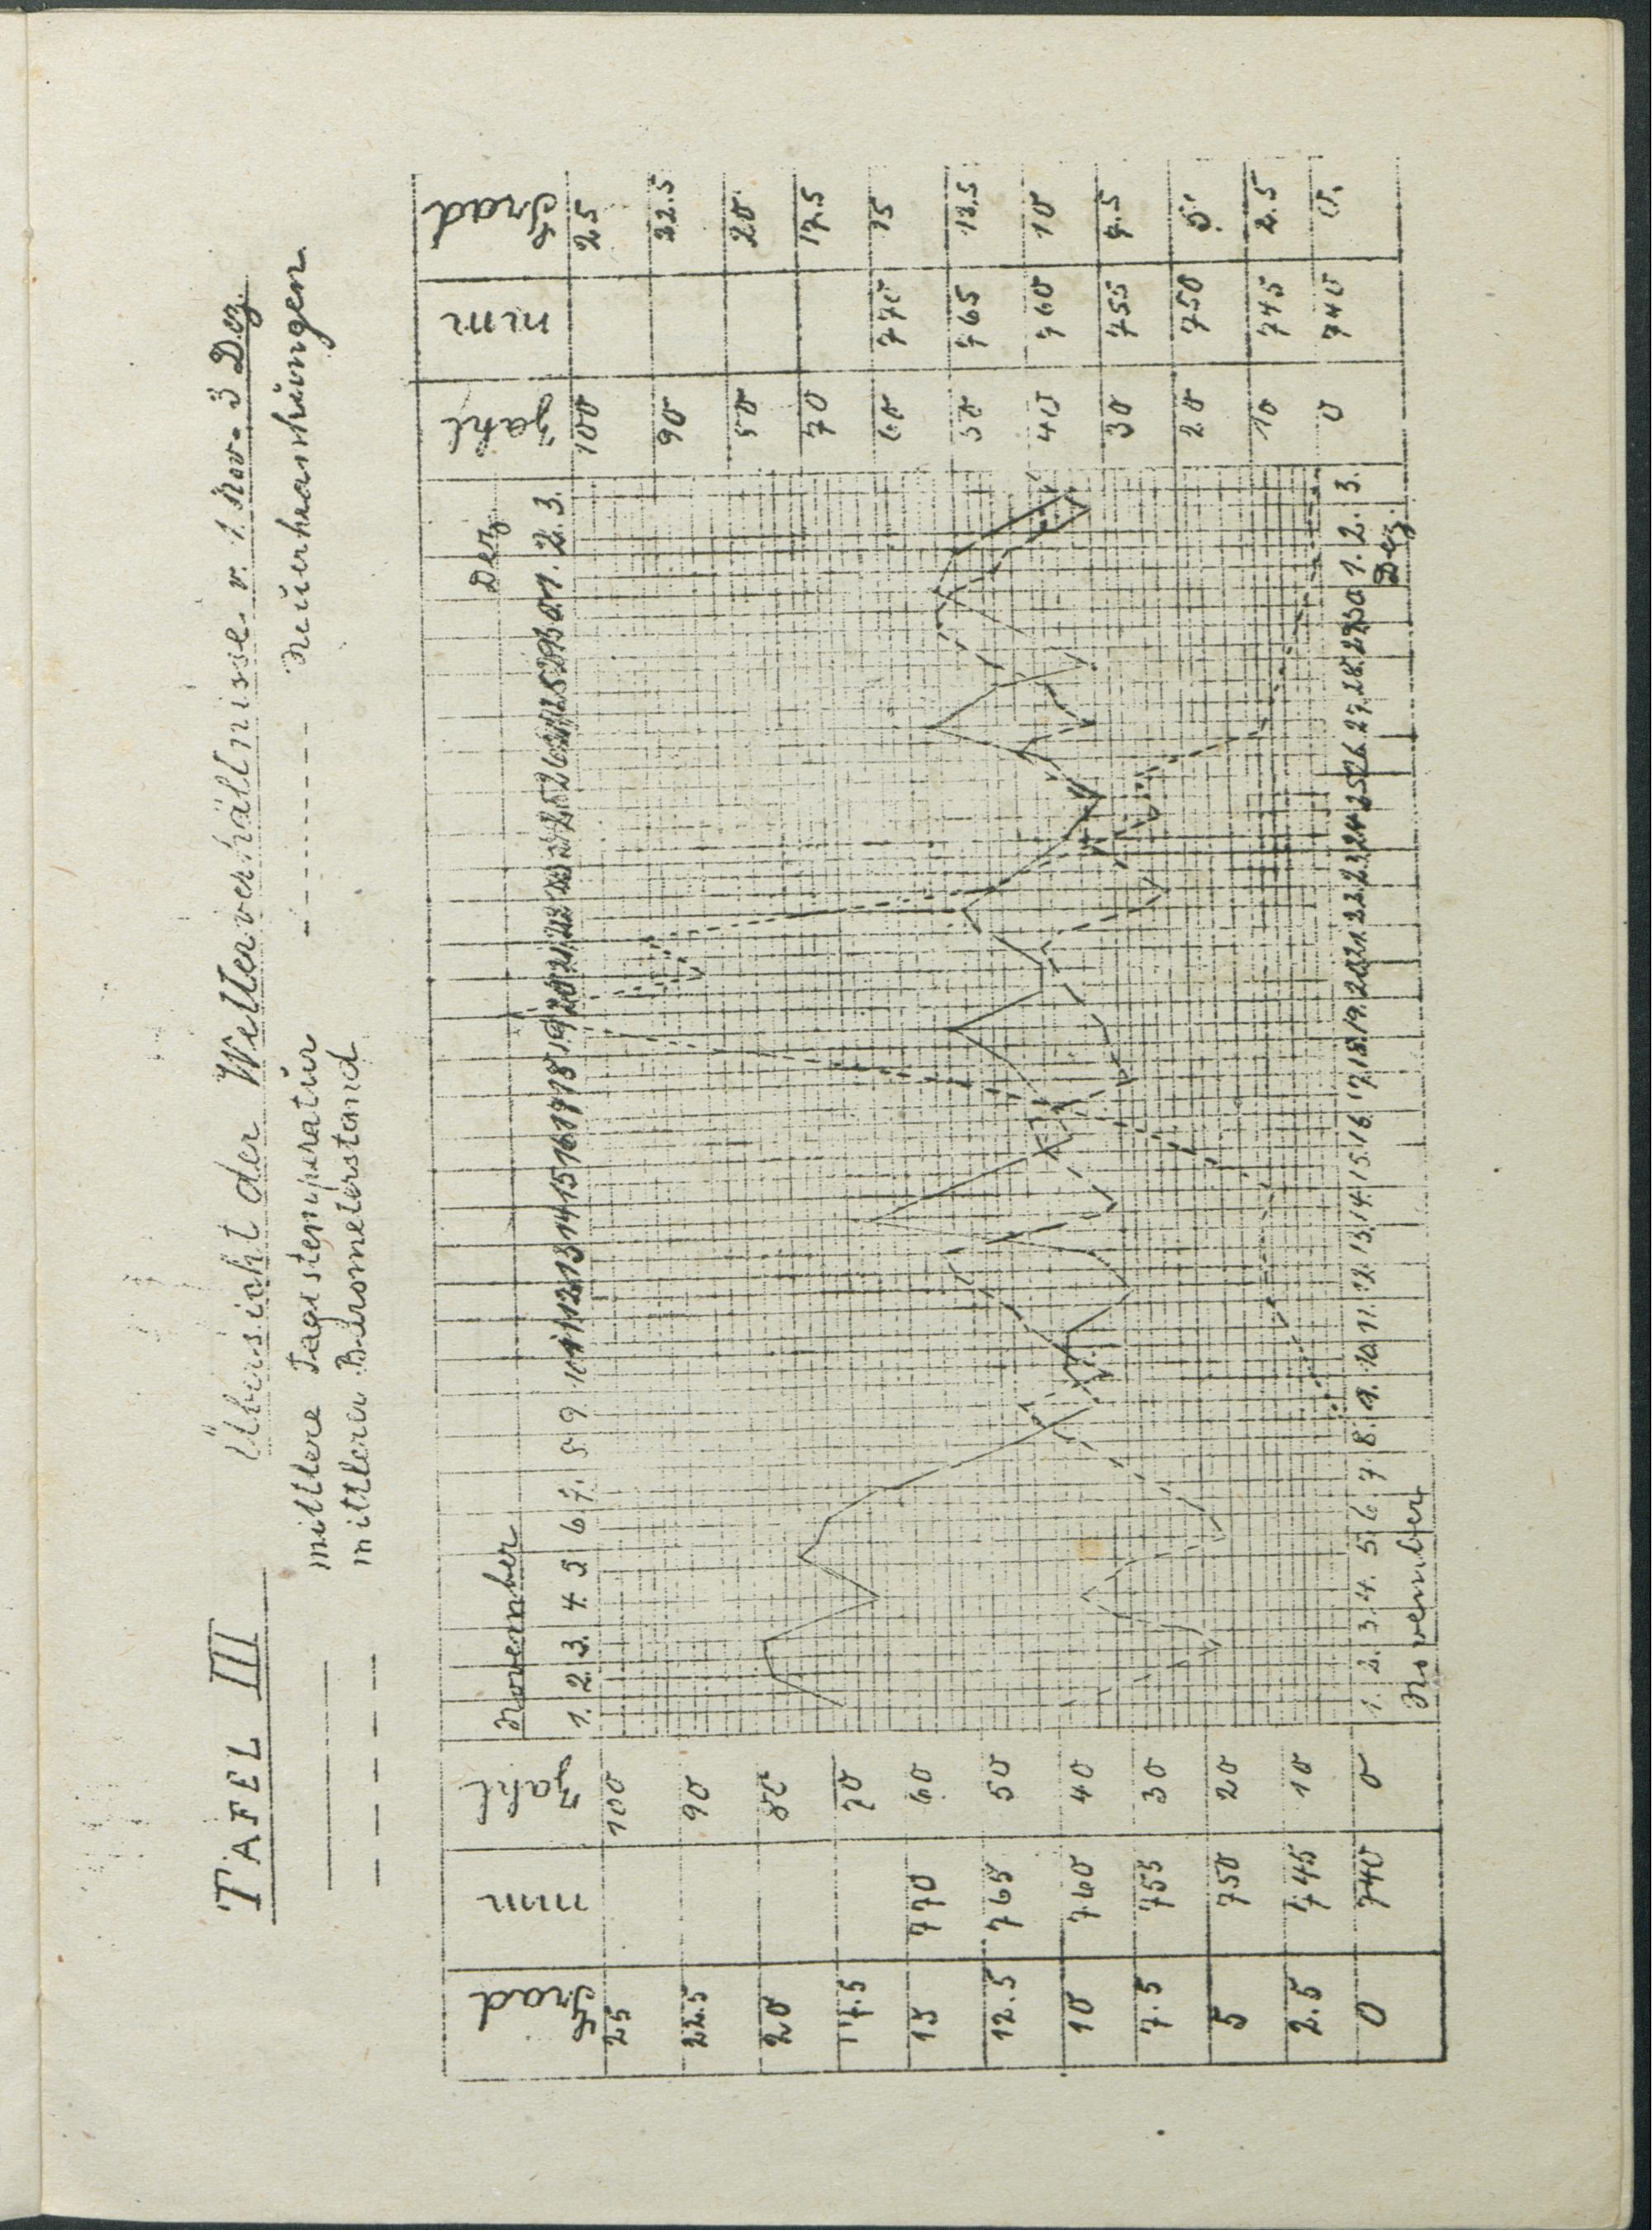 TAFEL III
Übersicht der Wetterverhältnisse v. 1. Nov. - 3 Dez.
mittlere Tagestemperatur
Neuerkrankungen
mittlerer Barometerstand
Grad mm Zahl November Dez Zahl mm Grad
1. 2. 3. 4. 5 6. 7. 8 9. 10 11 12 13 14 15 16 17 18 19 20 21 22 1. 2. 3.
25 100 100 25
22.5 90 90 22.5
20 80 80 20
17.5 70 70 17.5
15 770 60 60 770 15
12.5 765 50 50 765 12.5
10 760 40 40 760 10
7.5 755 30 30 755 7.5
5 750 20 20 750 5
2.5 745 10 10 745 2.5
0 740 0 0 740 0.
1. 2. 3. 4. 5 6. 7. 8. 9. 10. 11. 12. 13. 14. 15. 16. 17. 18. 19. 20. 21. 22. 23. 24. 25. 26. 27. 28. 29. 30 1. 2. 3.
November Dez.